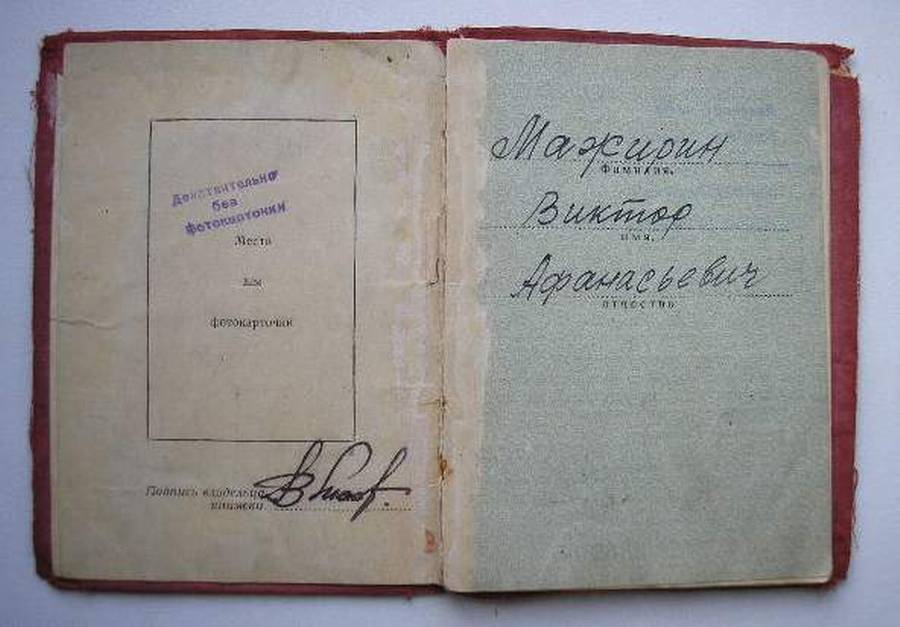 Действительно
без
фотокарточки
Место
для
фотокарточки
Подпись владельца
книжки
Мажирин
Фамилия.
Виктор
имя,
Афанасьевич
отчество